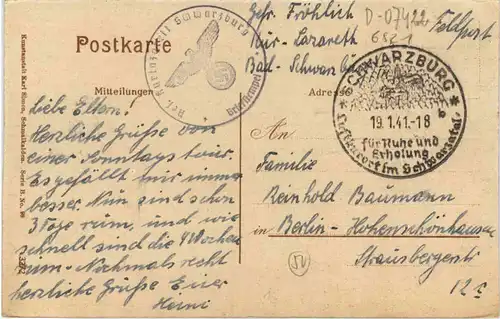 Postkarte
Mitteilungen
Liebe Eltern!
Herzliche Grüße von
einer Sonntags tour.
Es gefällt mir immer
besser. Nun sind schon
3 Tage rum, und wie
schnell sind die 4 Wochen
rum. Nochmals recht
herzliche Grüße Euer
Heini
Kunstanstalt Karl Simon, Schmalkalden. Serie B. No.
Schwarzburg
Briefstempel
Gefr. Fröhlich
Kur-Lazareth
Bad-Schwarzburg
Feldpost
D-07422
6821
Adresse
SCHWARZBURG
19.1.41.-18
b
für Ruhe und
Erholung
Luftkurort im Schwarzatal
An
Familie
Reinhold Baumann
in Berlin-Hohenschönhausen
Strausbergerstr
12